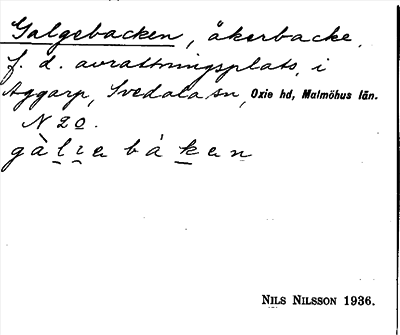 Galgebacken, åkerbacke,
f. d. avrättningsplats, i
Aggarp, Svedala sn, Oxie hd, Malmöhus län.
N 20.
gàlịe bákẹn
NILS NILSSON 1936.